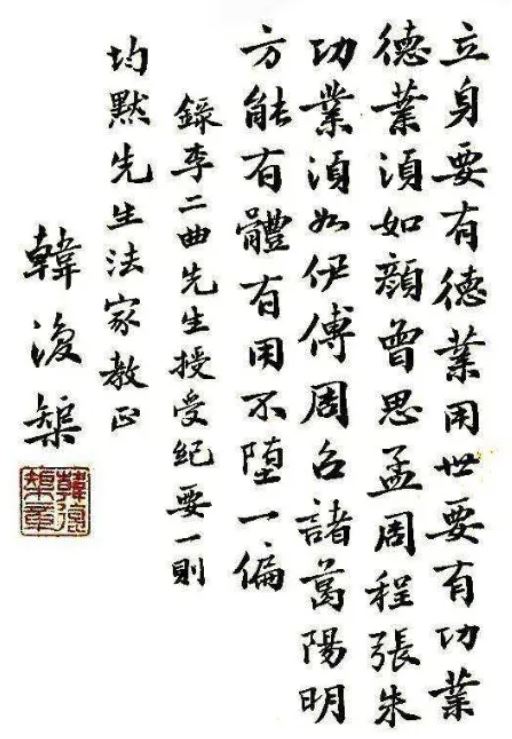 立身要有德業用世要有功業
德業須如顔曾思孟周程張朱
功業須如伊傅周召諸葛陽明
方能有體有用不墮一偏
錄李二曲先生授受紀要一則
均默先生法家教正
韓復榘
韓復榘章